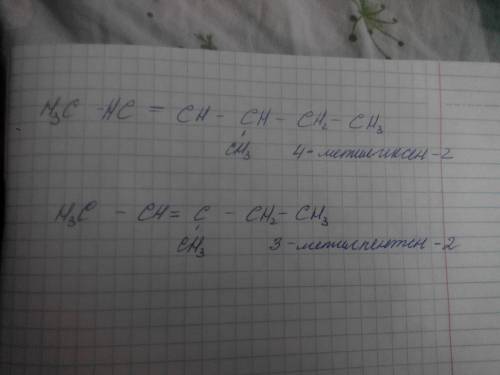 H₃C - HC = CH - CH - CH₂ - CH₃
CH₃ 4-метилгексен-2
H₃C - CH = C - CH₂ - CH₃
CH₃ 3-метилпентен-2